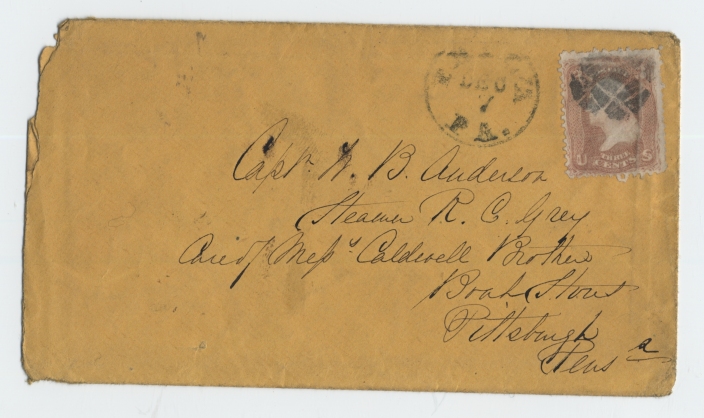 DEC
7
PA.
U THREE CENTS S
Capt. W. B. Anderson
Steamer R. C. Grey
Care of Mess^s Caldwell Brother
Boat Store
Pittsburgh
Pens^a